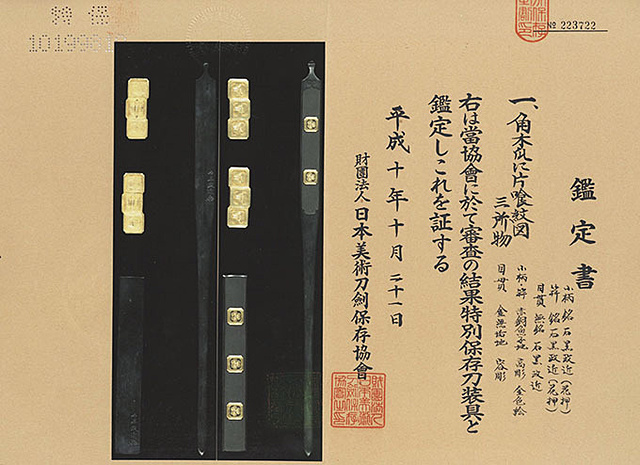 № 223722
鑑定書
一、角木瓜に片喰紋図
三所物
小柄 銘 石黒政近(花押)
笄 銘 石黒政近(花押)
目貫 無銘 石黒政近
小柄・笄 赤銅魚子地 高彫 金色絵
目貫 金無垢地 容彫
右は當協會に於て審査の結果特別保存刀装具と
鑑定しこれを証する
平成十年十月二十一日
財團法人日本美術刀劍保存協會